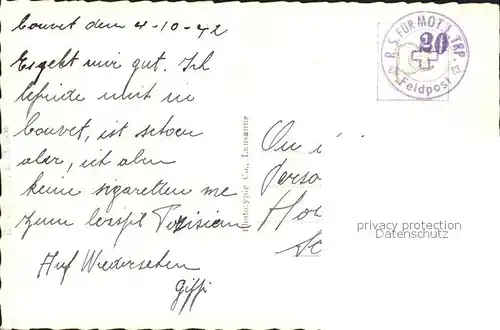 Couvet den 4-10-42
Es geht mir gut. Ich
befinde mich in
Couvet, ist schoen
aber, ich aben
keine sigaretten me
zum
Auf Wiedersehen
Giffi
Phototypie Co., Lausanne
R.S. FÜR MOT. L. TRP.
20
Feldpost
On
Perso
Hor
privacy protection
Datenschutz